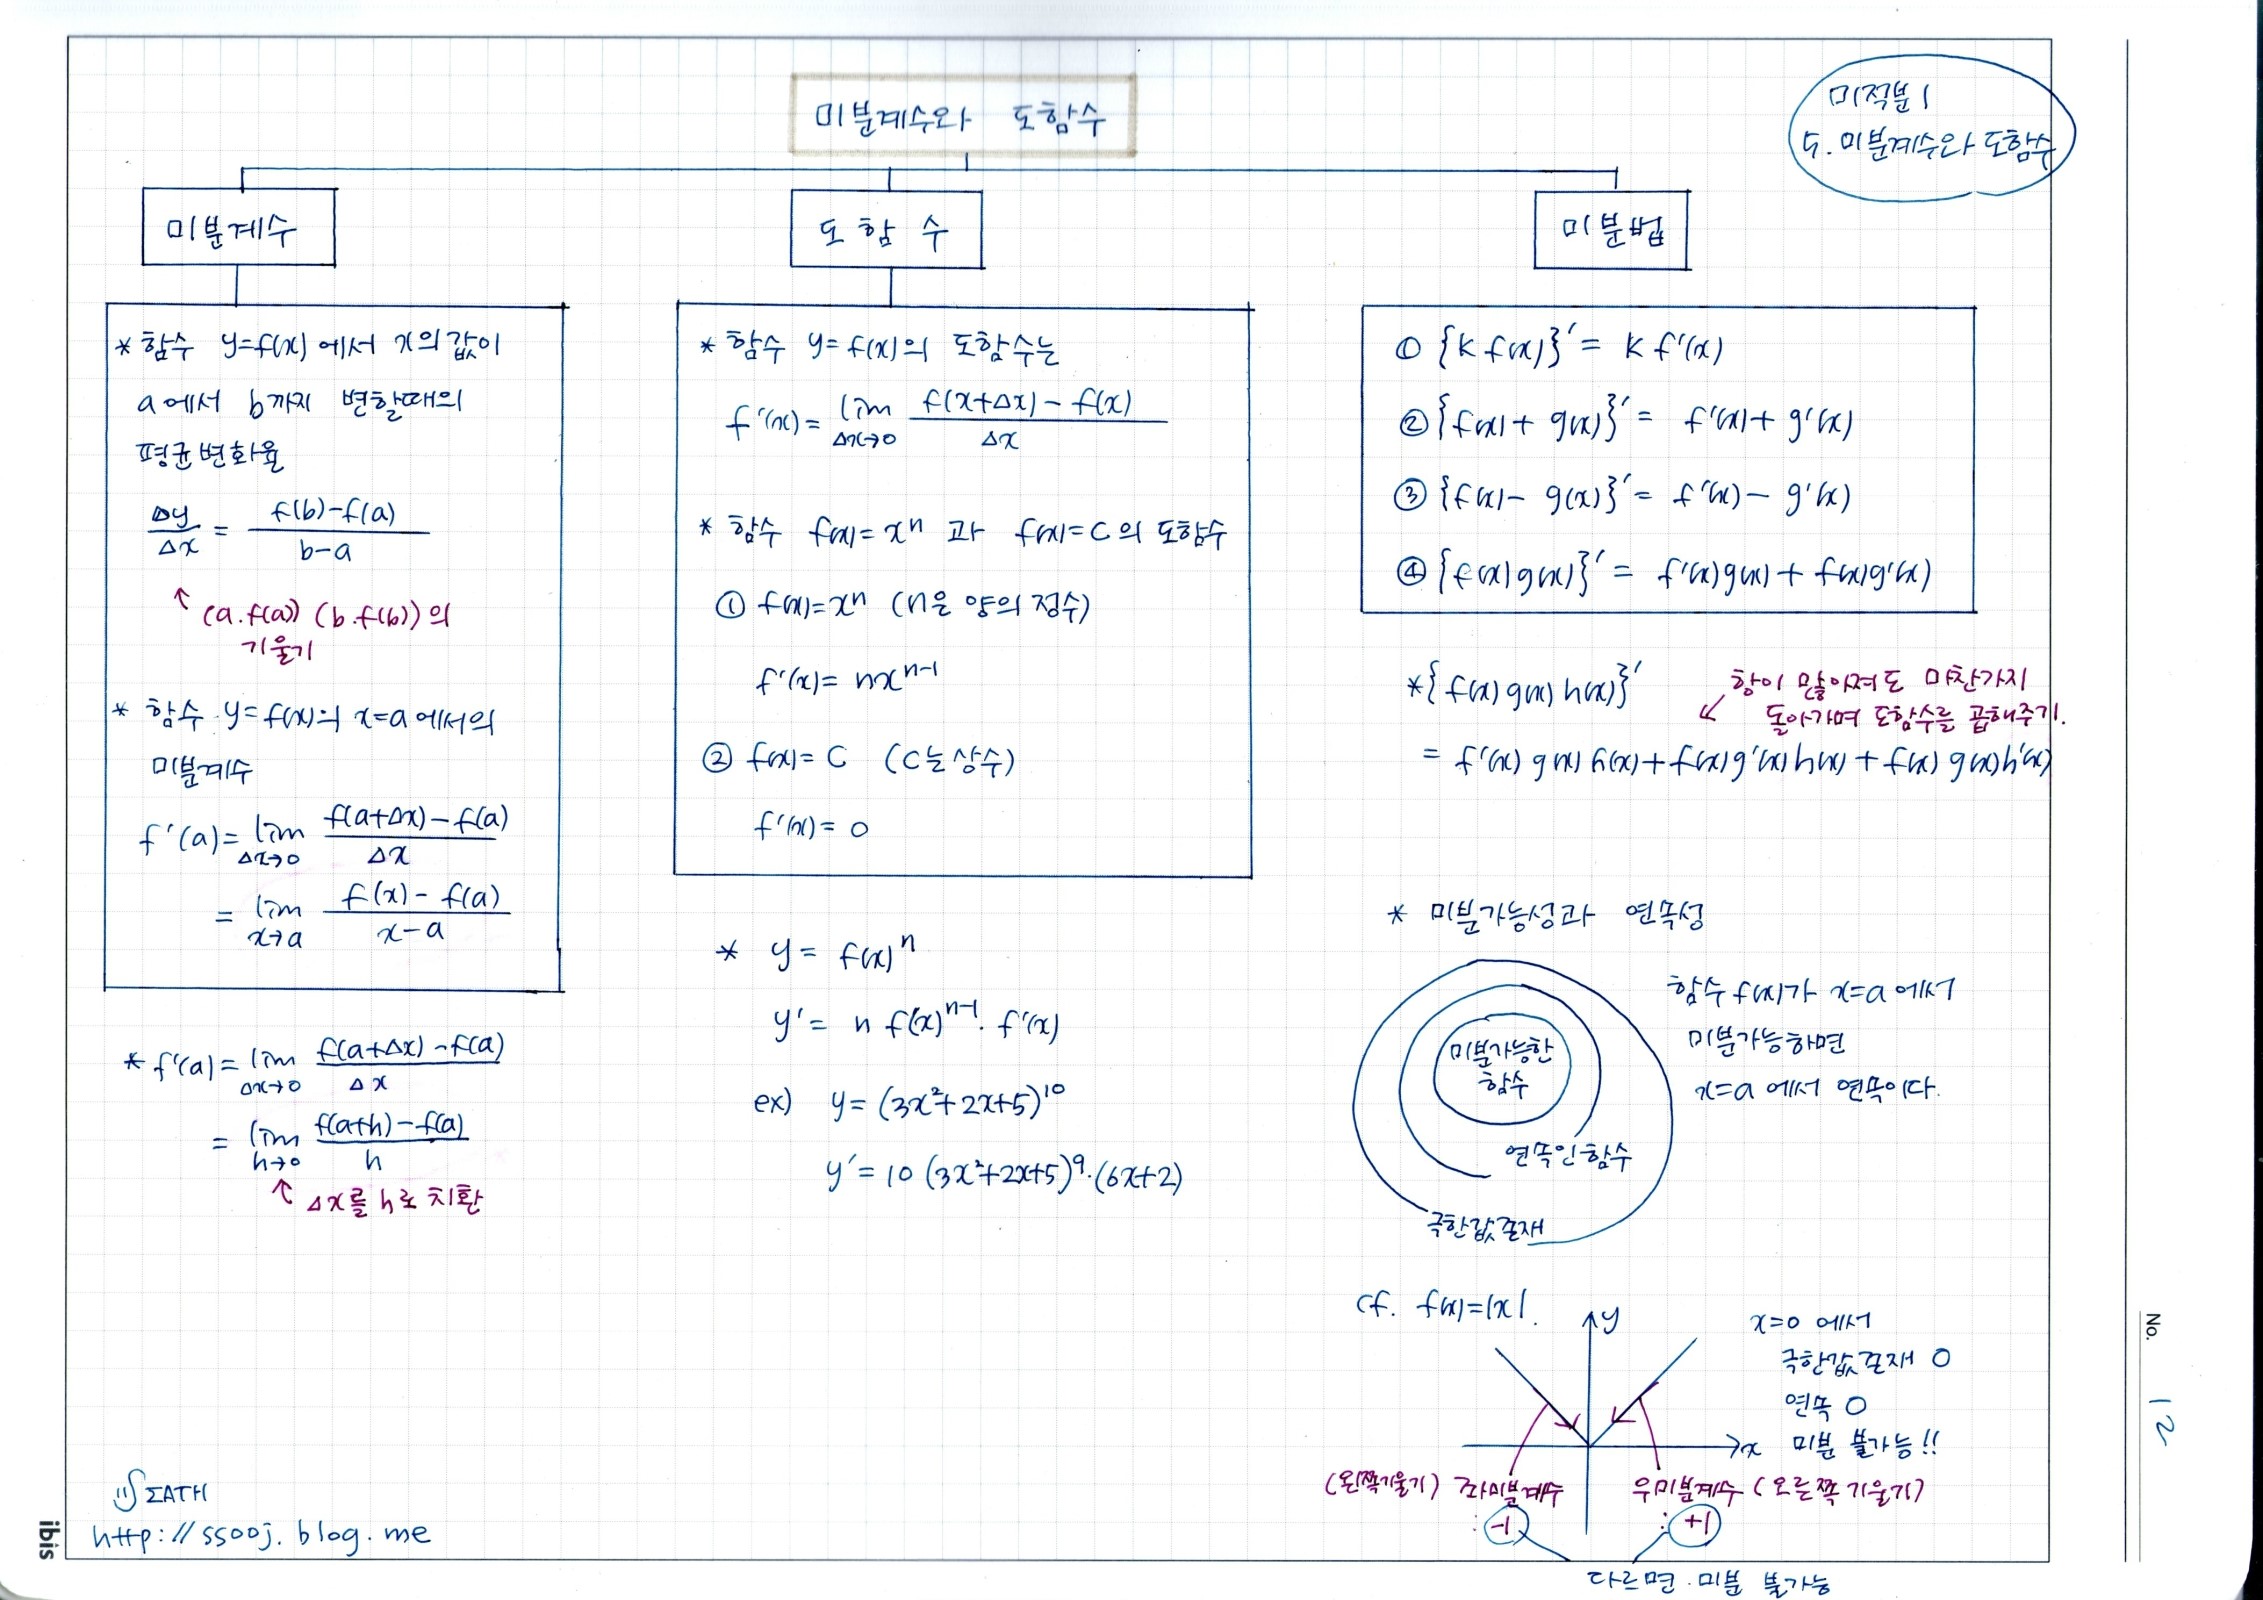 미분계수와 도함수
미적분 1
5. 미분계수와 도함수
미분계수
* 함수 y=f(x)에서 x의 값이
a에서 b까지 변할때의
평균변화율
Δy/Δx = (f(b)-f(a))/(b-a)
↑ (a.f(a)) (b.f(b))의
기울기
* 함수 y=f(x)의 x=a에서의
미분계수
f'(a)= lim Δx→0 (f(a+Δx)-f(a))/Δx
= lim x→a (f(x)-f(a))/(x-a)
* f'(a)= lim Δx→0 (f(a+Δx)-f(a))/Δx
= lim h→0 (f(a+h)-f(a))/h
↑ Δx를 h로 치환
도함수
* 함수 y=f(x)의 도함수는
f'(x)= lim Δx→0 (f(x+Δx)-f(x))/Δx
* 함수 f(x)=xⁿ 과 f(x)=C의 도함수
① f(x)=xⁿ (n은 양의 정수)
f'(x)= nxⁿ⁻¹
② f(x)= C (C는 상수)
f'(x)= 0
* y= f(x)ⁿ
y'= n f(x)ⁿ⁻¹· f'(x)
ex) y= (3x²+2x+5)¹⁰
y'= 10 (3x²+2x+5)⁹·(6x+2)
미분법
① {k f(x)}'= k f'(x)
② {f(x)+ g(x)}'= f'(x)+ g'(x)
③ {f(x)- g(x)}'= f'(x)- g'(x)
④ {f(x)g(x)}'= f'(x)g(x)+ f(x)g'(x)
*{f(x)g(x)h(x)}'
항이 많아져도 마찬가지
↙ 돌아가며 도함수를 곱해주기.
= f'(x)g(x)h(x)+f(x)g'(x)h(x)+f(x)g(x)h'(x)
* 미분가능성과 연속성
미분가능한
함수
연속인함수
극한값존재
함수 f(x)가 x=a에서
미분가능하면
x=a에서 연속이다.
cf. f(x)=|x|.
y
x
x=0 에서
극한값존재 O
연속 O
미분 불가능!!
(왼쪽기울기) 좌미분계수
: -1
우미분계수 (오른쪽 기울기)
: +1
다르면.미분 불가능
ΣATH
http://ssooj.blog.me
ibis
No. 12